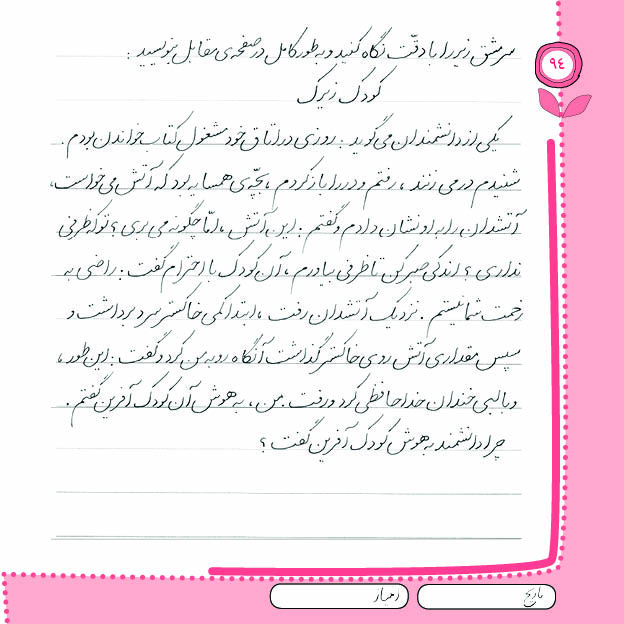 سرمشق زیر را با دقّت نگاه کنید و به طور کامل در صفحه‌ی مقابل بنویسید :
۹۴
کودک زیرک
یکی از دانشمندان می‌گوید : روزی در اتاق خود مشغول کتاب خواندن بودم .
شنیدم در می زنند ، رفتم و در را باز کردم ، بچّه‌ی همسایه بود که آتش می‌خواست ،
آتشدان را به او نشان دادم و گفتم : این آتش ، امّا چگونه می بری ؟ تو که ظرفی
نداری ؟ اندکی صبر کن تا ظرفی بیاورم ، آن کودک با احترام گفت : راضی به
زحمت شما نیستم . نزدیک آتشدان رفت ، ابتدا کمی خاکستر سرد برداشت و
سپس مقداری آتش روی خاکستر گذاشت آنگاه رو به من کرد و گفت : این طور ،
و با لبی خندان خداحافظی کرد و رفت . من ، به هوش آن کودک آفرین گفتم .
چرا دانشمند به هوش کودک آفرین گفت ؟
تاریخ